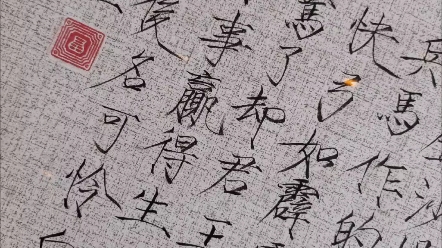 兵馬作的
快弓如霹
了却君王
事贏得生
後名可怜